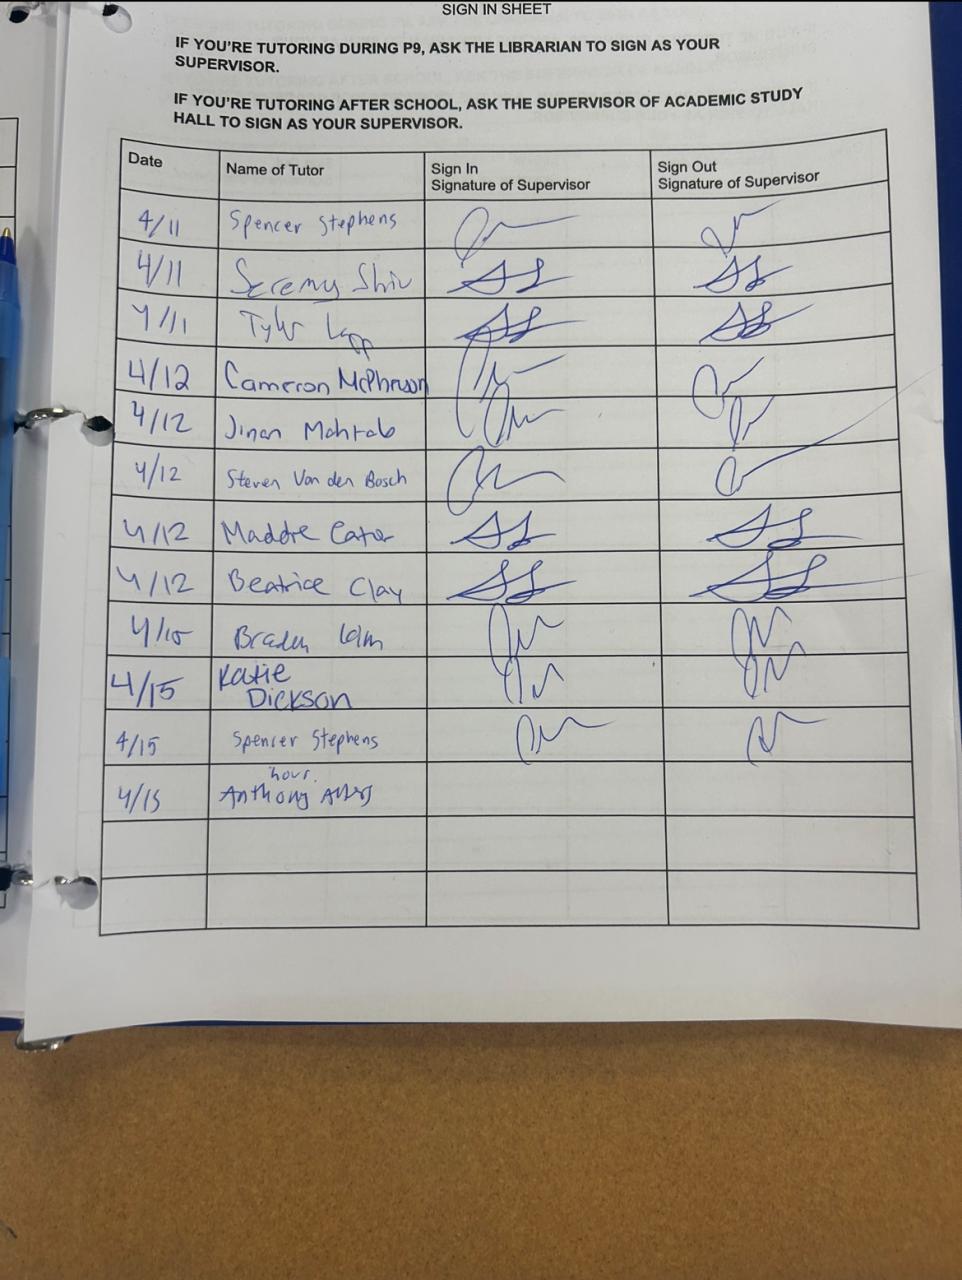 SIGN IN SHEET
IF YOU'RE TUTORING DURING P9, ASK THE LIBRARIAN TO SIGN AS YOUR
SUPERVISOR.
IF YOU'RE TUTORING AFTER SCHOOL, ASK THE SUPERVISOR OF ACADEMIC STUDY
HALL TO SIGN AS YOUR SUPERVISOR.
Date Name of Tutor Sign In Sign Out
Signature of Supervisor Signature of Supervisor
4/11 Spencer Stephens
4/11 Jeremy Shiv
4/11 Tyler
4/12 Cameron McPherson
4/12 Jinan Mahtab
4/12 Steven Van den Bosch
4/12 Maddie Cator
4/12 Beatrice Clay
4/15 Braden
4/15 Katie
Dickson
4/15 Spencer Stephens
hour.
4/15 Anthony